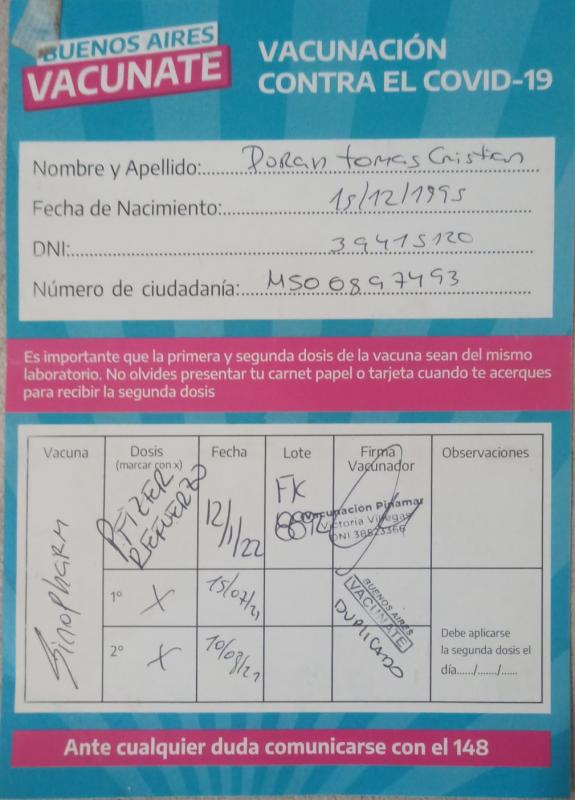 BUENOS AIRES
VACUNATE
VACUNACIÓN
CONTRA EL COVID-19
Nombre y Apellido: Doran tomas Cristian
Fecha de Nacimiento: 15/12/1995
DNI: 39415120
Número de ciudadanía: MSO 6897493
Es importante que la primera y segunda dosis de la vacuna sean del mismo
laboratorio. No olvides presentar tu carnet papel o tarjeta cuando te acerques
para recibir la segunda dosis
Vacuna
Dosis
(marcar con x)
Fecha
Lote
Firma
Vacunador
Observaciones
Sinopharm
PFIZER
REFUERZO
12/1/22
FK
Vacunación Pinamar
Victoria
DNI
1º X
15/07/21
BUENOS AIRES
VACUNATE
DUPLICADO
2º X
Debe aplicarse
la segunda dosis el
día....../......./......
Ante cualquier duda comunicarse con el 148